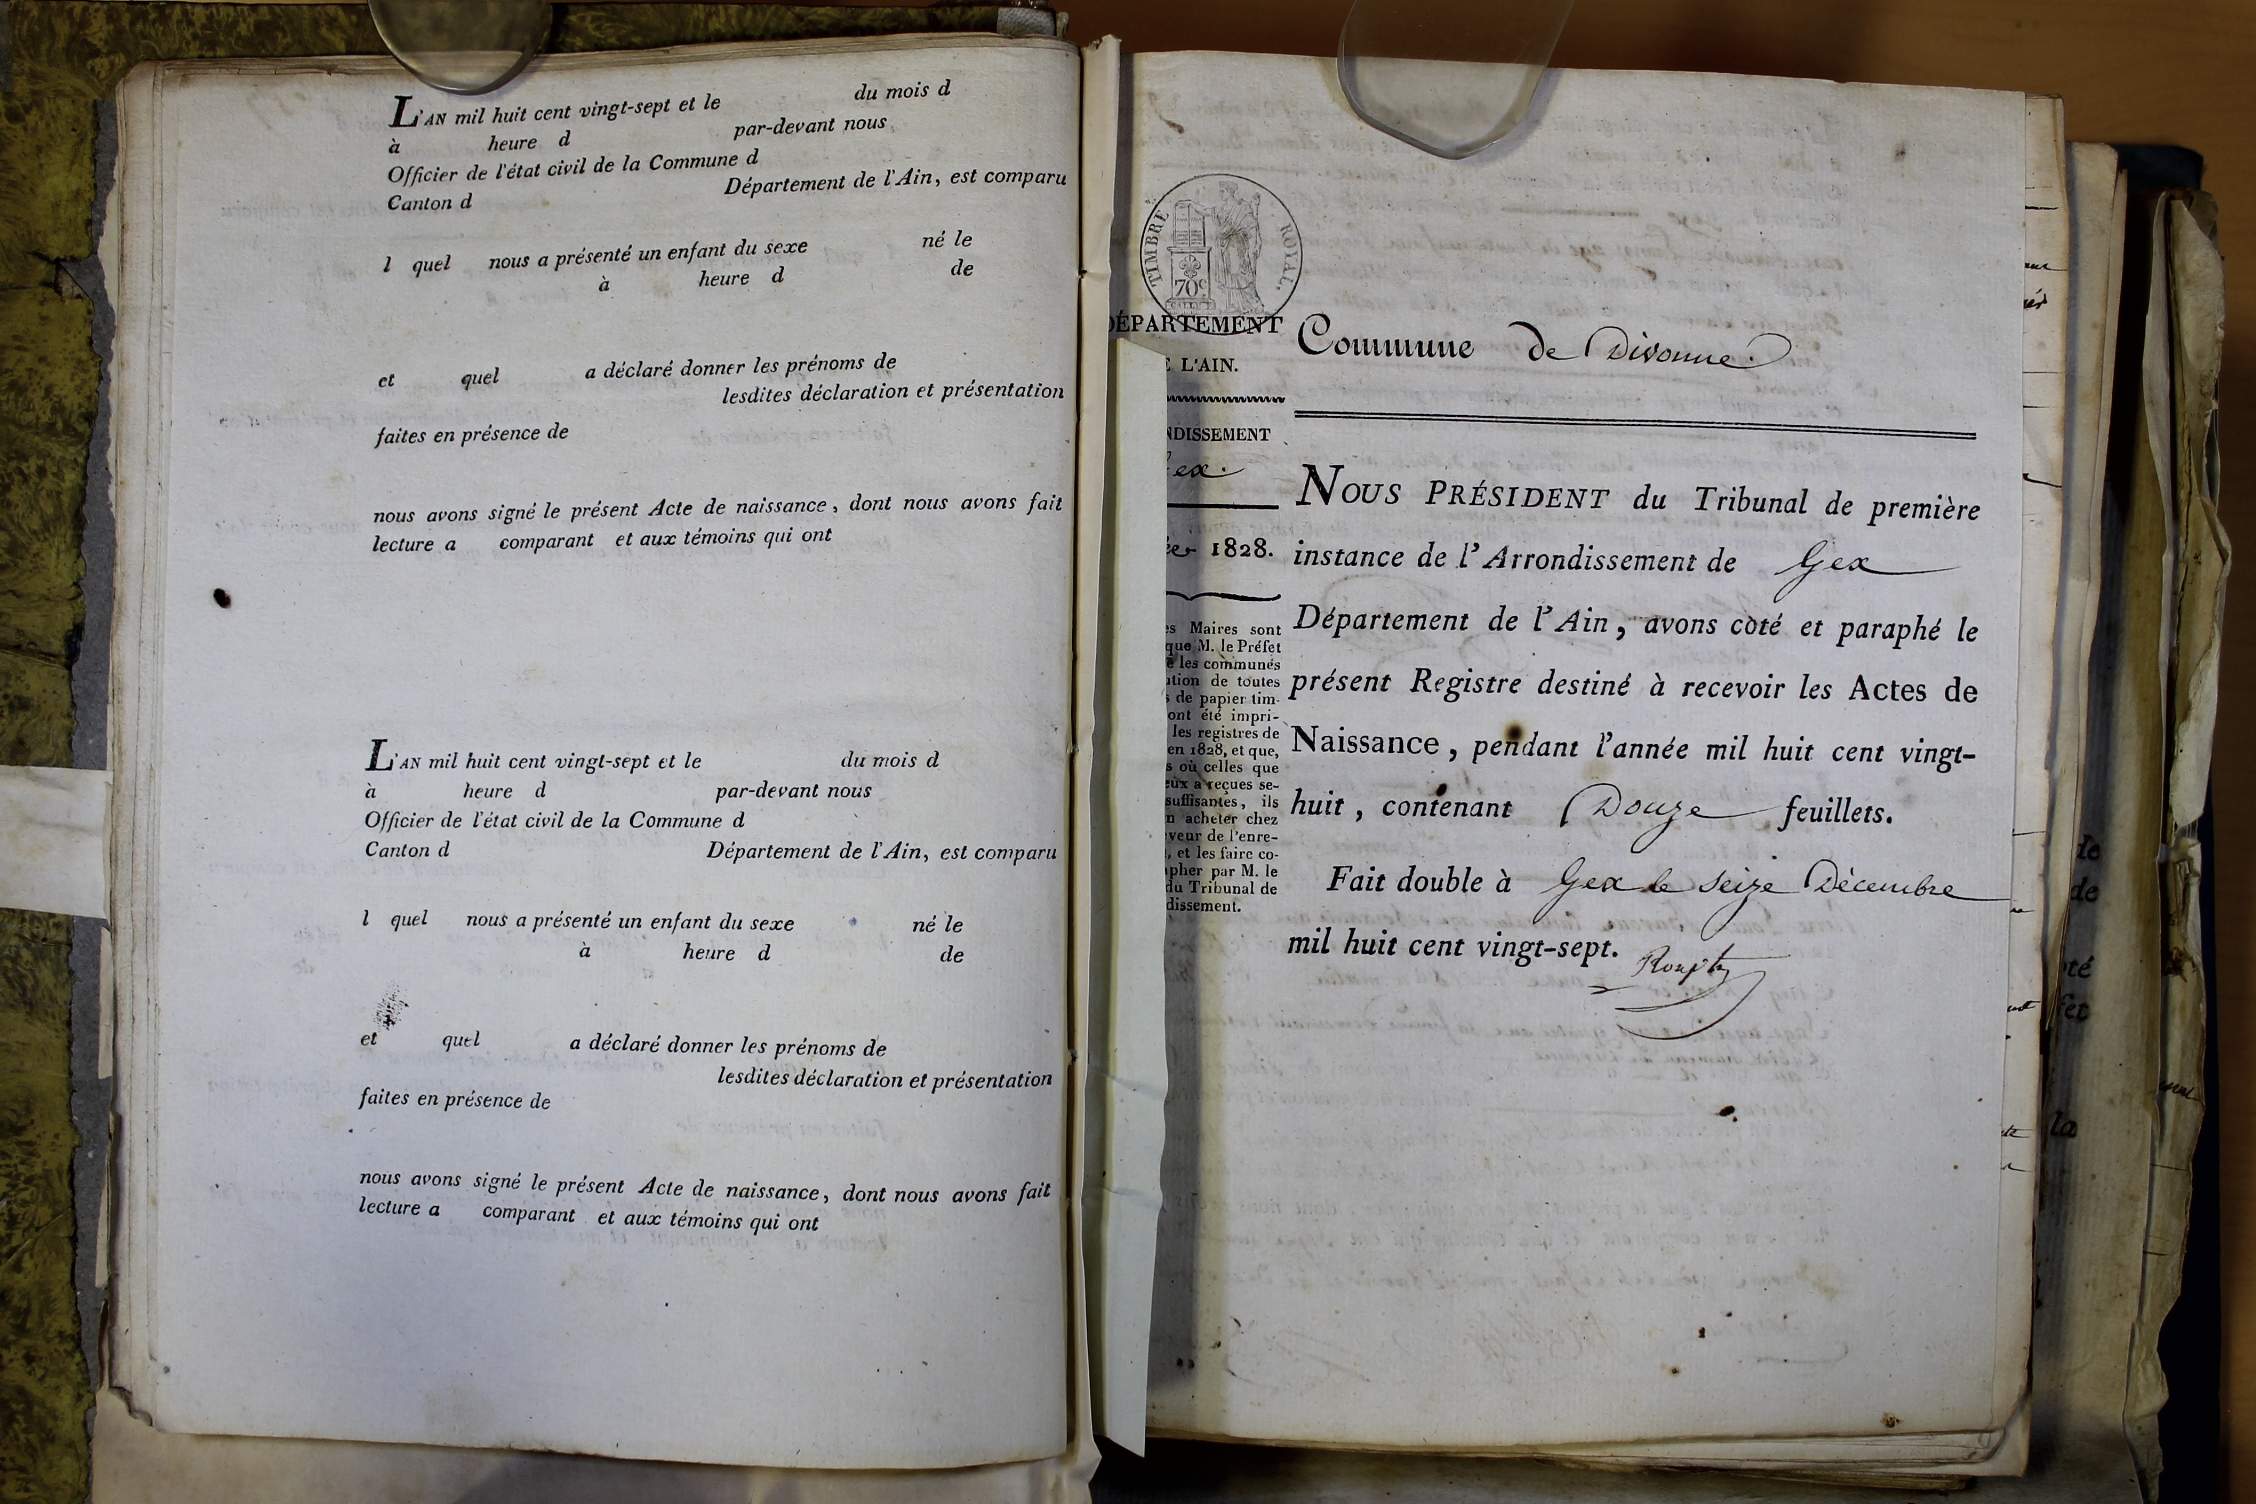 L'AN mil huit cent vingt-sept et le du mois d
à heure d par-devant nous
Officier de l'état civil de la Commune d
Canton d Département de l'Ain, est comparu
l quel nous a présenté un enfant du sexe né le
à heure d de
et quel a déclaré donner les prénoms de
lesdites déclaration et présentation
faites en présence de
nous avons signé le présent Acte de naissance, dont nous avons fait
lecture a comparant et aux témoins qui ont
L'AN mil huit cent vingt-sept et le du mois d
à heure d par-devant nous
Officier de l'état civil de la Commune d
Canton d Département de l'Ain, est comparu
l quel nous a présenté un enfant du sexe né le
à heure d de
et quel a déclaré donner les prénoms de
lesdites déclaration et présentation
faites en présence de
nous avons signé le présent Acte de naissance, dont nous avons fait
lecture a comparant et aux témoins qui ont
TIMBRE ROYAL.
70c
DÉPARTEMENT
E L'AIN.
NDISSEMENT
ex.
1828.
es Maires sont
que M. le Préfet
e les communes
ution de toutes
s de papier tim-
ont été impri-
les registres de
en 1828, et que,
s où celles que
eux a reçues se-
suffisantes, ils
n acheter chez
veur de l'enre-
, et les faire co-
apher par M. le
du Tribunal de
dissement.
Commune de Divonne.
NOUS PRÉSIDENT du Tribunal de première
instance de l'Arrondissement de Gex
Département de l'Ain, avons coté et paraphé le
présent Registre destiné à recevoir les Actes de
Naissance, pendant l'année mil huit cent vingt-
huit, contenant Douze feuillets.
Fait double à Gex le seize Décembre
mil huit cent vingt-sept.
de
de
té
fet
la